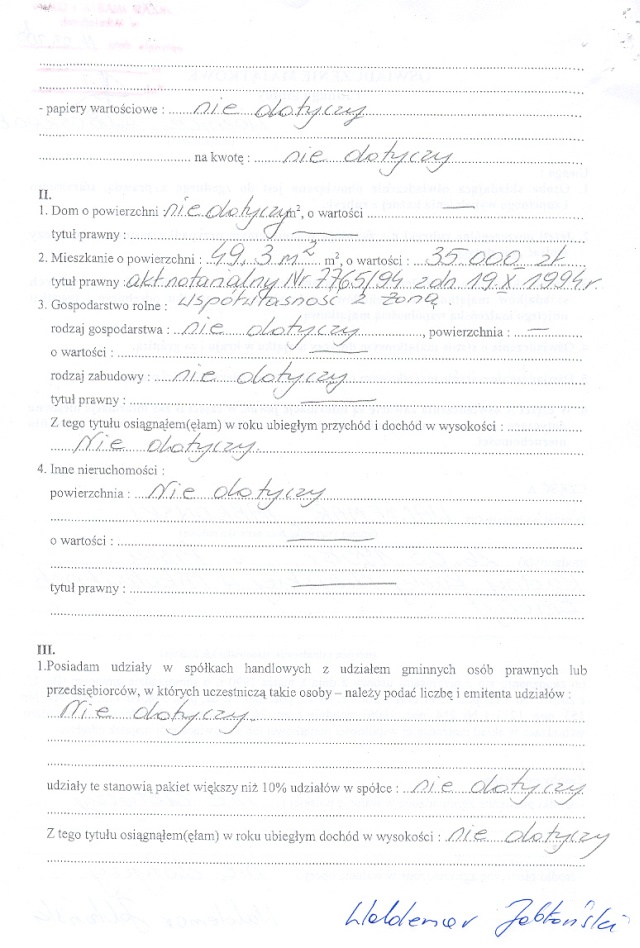 - papiery wartościowe : nie dotyczy
na kwotę : nie dotyczy
II.
1. Dom o powierzchni : nie dotyczy m², o wartości : —
tytuł prawny : —
2. Mieszkanie o powierzchni : 49,3 m² m², o wartości : 35 000 zł
tytuł prawny : akt notarialny Nr 7765/94 z dn. 19 X 1994 r
współwłasność z żoną.
3. Gospodarstwo rolne :
rodzaj gospodarstwa : nie dotyczy, powierzchnia : —
o wartości : —
rodzaj zabudowy : nie dotyczy
tytuł prawny : —
Z tego tytułu osiągnąłem(ęłam) w roku ubiegłym przychód i dochód w wysokości :
Nie dotyczy.
4. Inne nieruchomości :
powierzchnia : Nie dotyczy
o wartości : —
tytuł prawny : —
III.
1.Posiadam udziały w spółkach handlowych z udziałem gminnych osób prawnych lub
przedsiębiorców, w których uczestniczą takie osoby – należy podać liczbę i emitenta udziałów :
Nie dotyczy.
udziały te stanowią pakiet większy niż 10% udziałów w spółce : nie dotyczy
Z tego tytułu osiągnąłem(ęłam) w roku ubiegłym dochód w wysokości : nie dotyczy
Waldemar Jabłoński